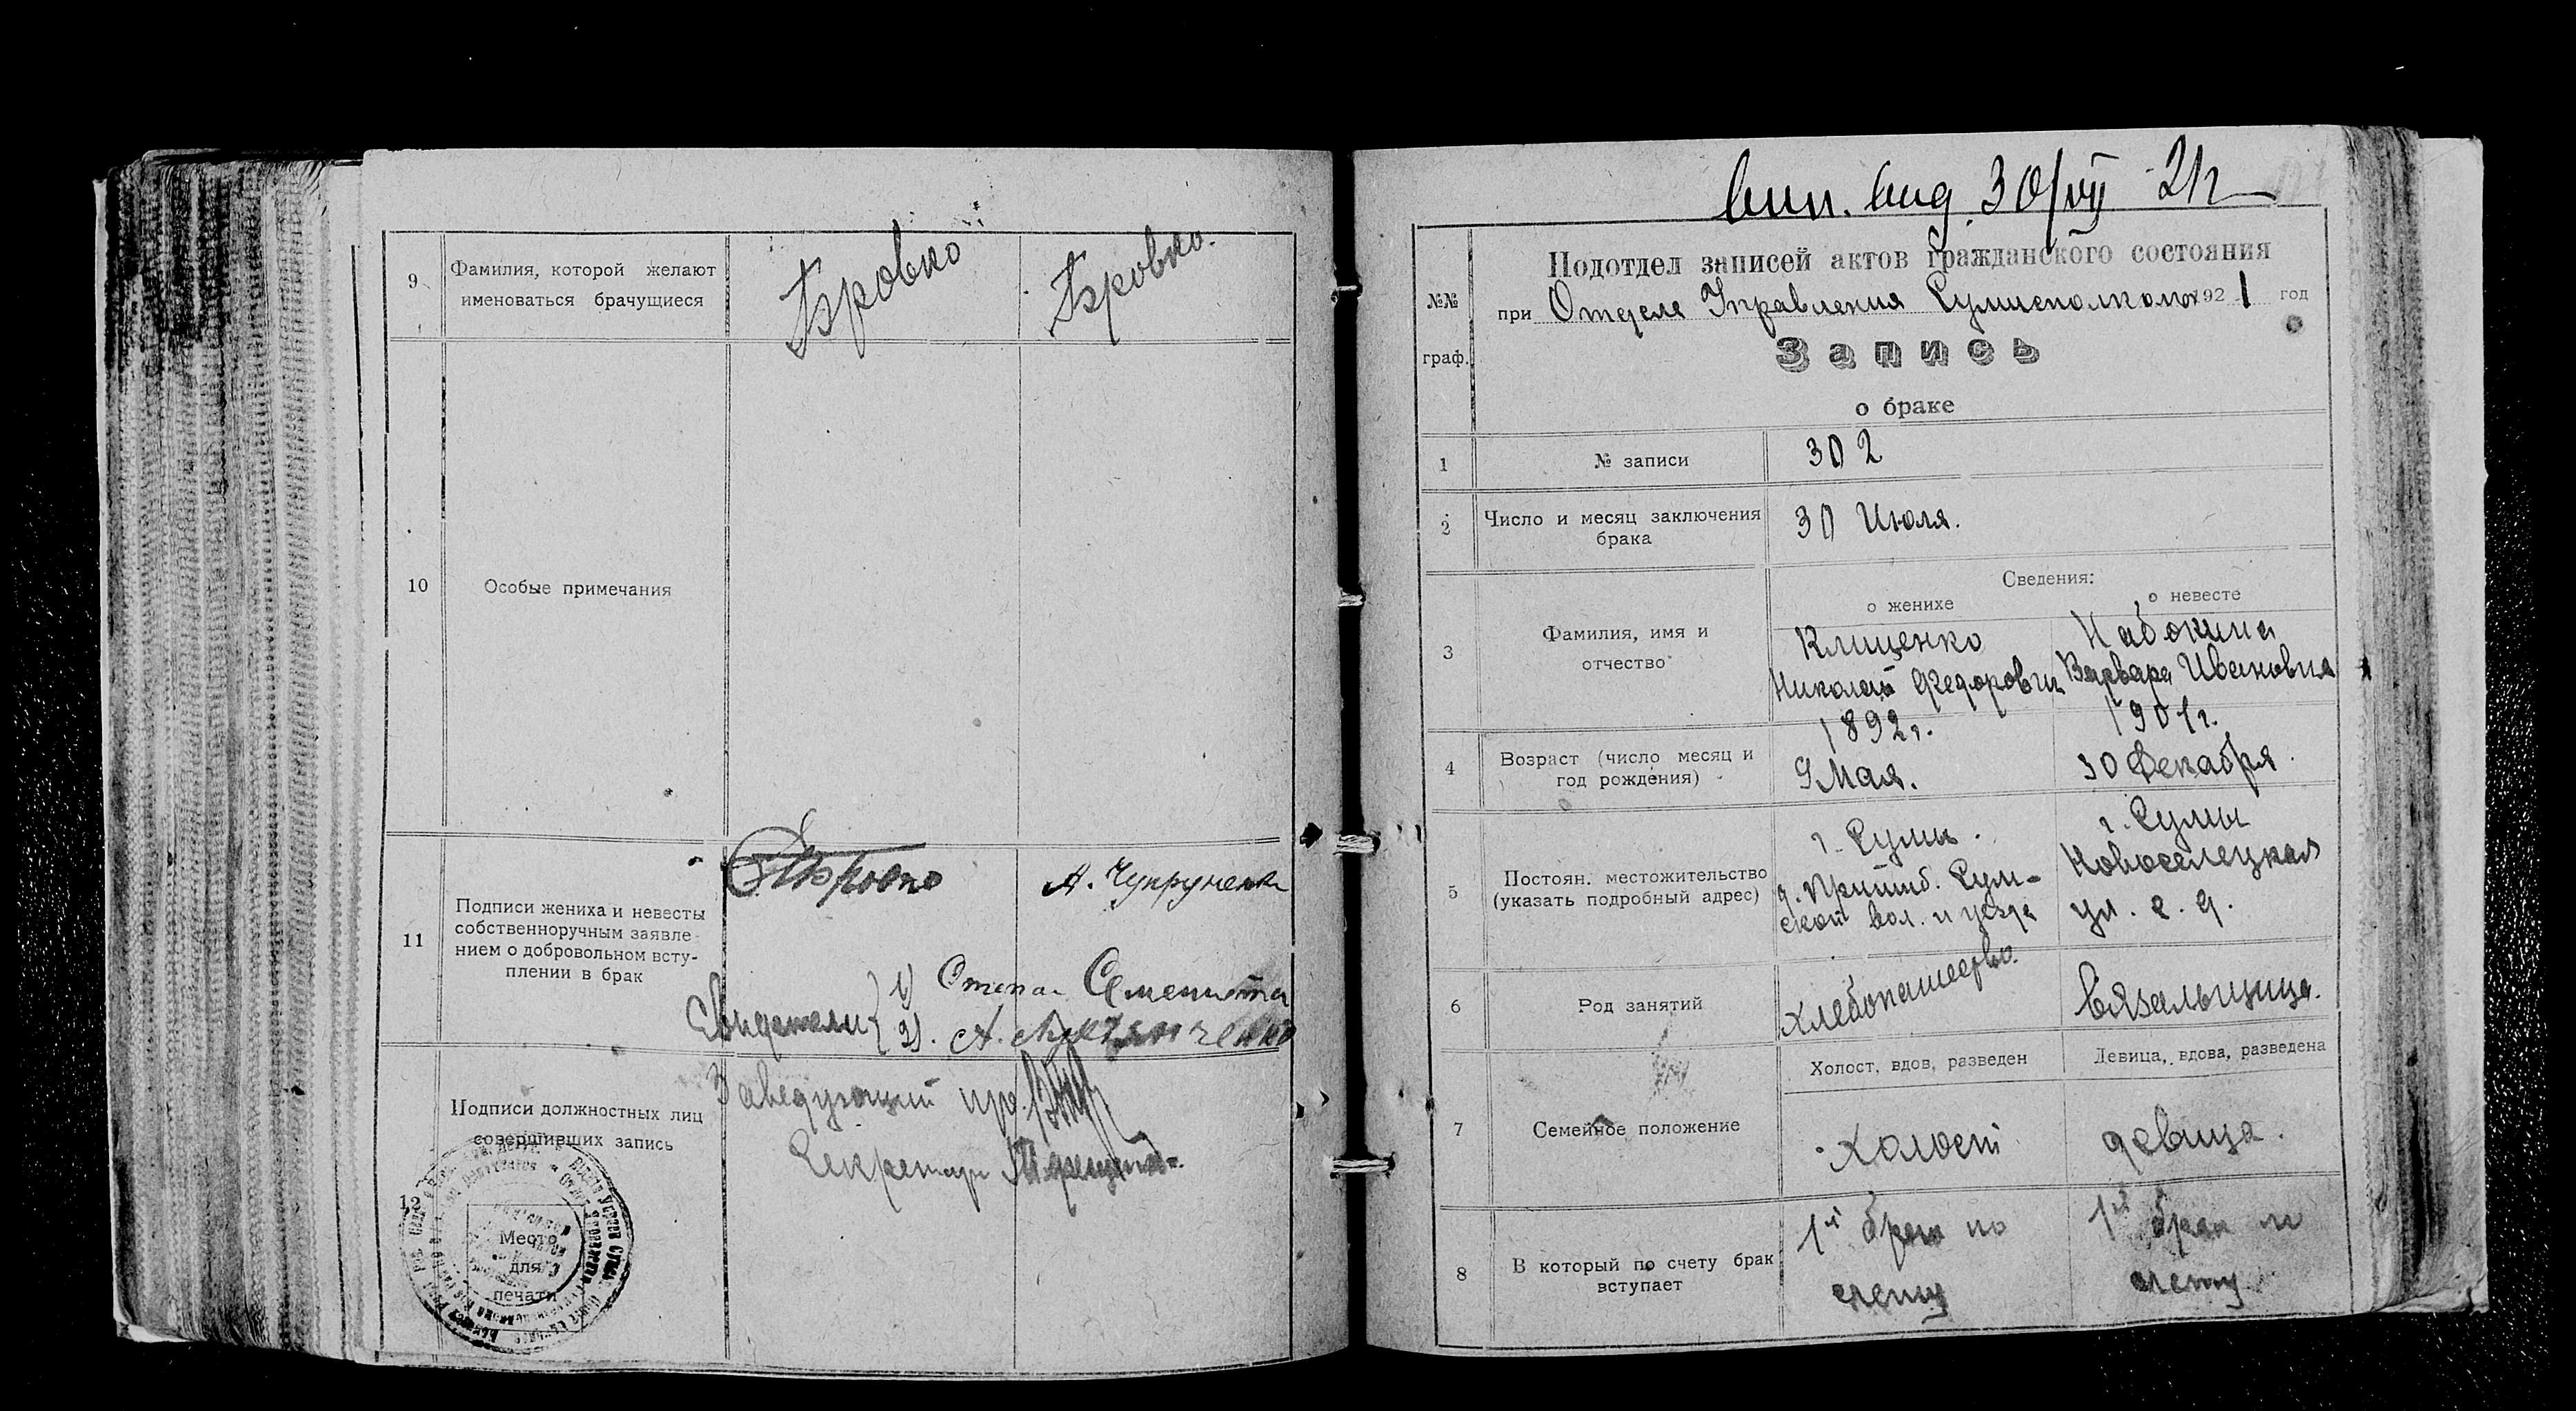 9
Фамилия, которой желают
именоваться брачущиеся
Бровко
Бровко.
10
Особые примечания
11
Подписи жениха и невесты
собственноручным заявле-
нием о добровольном всту-
плении в брак
Бровко
А. Чупруненко
Свидетели
1)
2). А.
12
Подписи должностных лиц
совершивших запись
Заведующий
Секретарь
Место
для
печати
вид 30/VII 21 г
№№
граф.
Подотдел записей актов гражданского состояния
при Отделе Управления Сумисполкома 1921 год
Запись
о браке
1
№ записи
302
2
Число и месяц заключения
брака
30 Июля.
Сведения:
о женихе
о невесте
3
Фамилия, имя и
отчество
Клищенко
Николай Федорович
Набокина
Варвара Ивановна
4
Возраст (число месяц и
год рождения)
1892 г.
9 Мая.
1901 г.
30 Декабря.
5
Постоян. местожительство
(указать подробный адрес)
г. Сумы.
Сум-
ской вол. и уезда
г. Сумы
Новоселецкая
ул. с. д.
6
Род занятий
хлебопашество.
вязальщица.
7
Семейное положение
Холост, вдов, разведен
Девица, вдова, разведена
холост
девица.
8
В который по счету брак
вступает
1й брак по
счету
1й брак по
счету